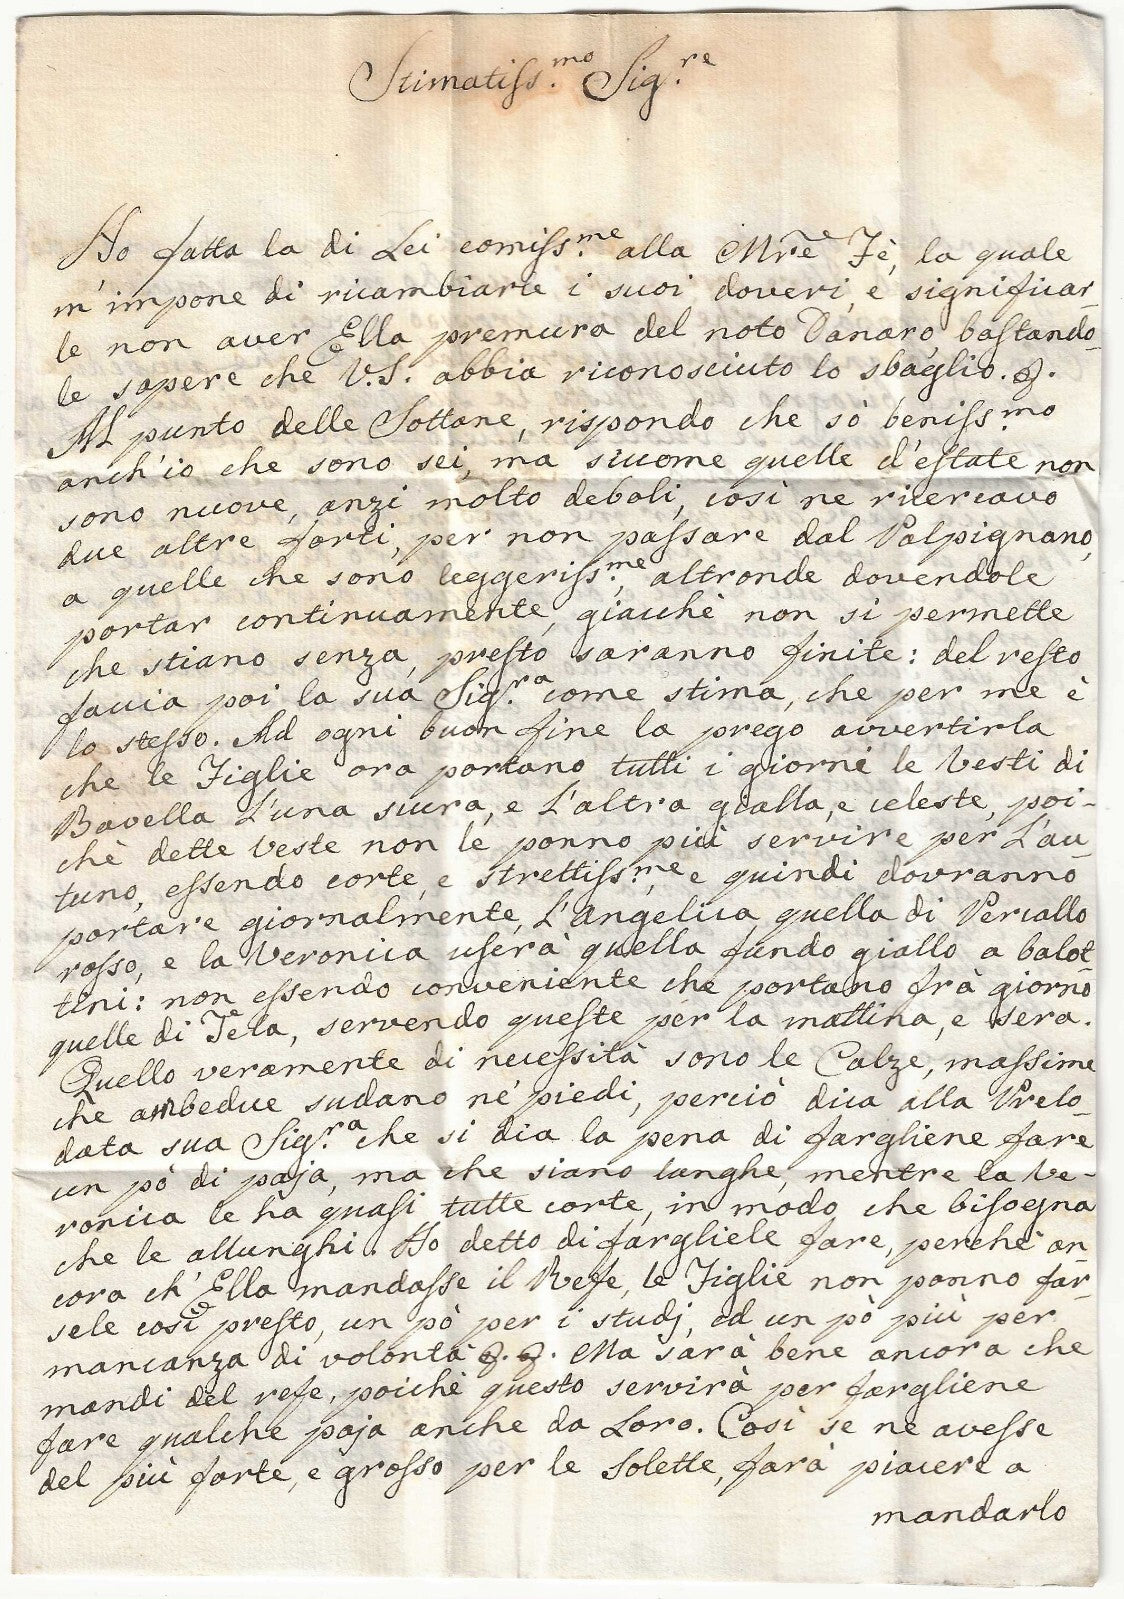 Stimatiss.mo Sig.re
Ho fatta la di Lei comiss.me alla Mre Fè, la quale
m'impone di ricambiarle i suoi doveri, e significar-
le non aver Ella premura del noto Danaro, bastando-
le sapere che V.S. abbia riconosciuto lo sbaglio. &.
Al punto delle Sottane, rispondo che sò beniss.mo
anch'io che sono sei, ma siccome quelle d'estate non
sono nuove, anzi molto deboli, così ne ricercavo
due altre forti, per non passare dal Valpignano,
a quelle che sono leggeriss.me, altronde dovendole
portar continuamente, giacchè non si permette
che stiano senza, presto saranno finite: del resto
faccia poi la sua Sig.ra come stima, che per me è
lo stesso. Ad ogni buon fine la prego avvertirla
che le Figlie ora portano tutti i giorni le Vesti di
Bavella L'una scura, e L'altra gialla, e celeste, poi-
chè dette Veste non le ponno più servire per L'au-
tuno, essendo corte, e strettiss.me, e quindi dovranno
portare giornalmente, L'Angelica quella di Percallo
rosso, e la Veronica userà quella fundo giallo a balot-
tini: non essendo conveniente che portano frà giorno
quelle di Tela, servendo queste per la mattina, e sera.
Quello veramente di necessità sono le Calze, massime
chè ambedue sudano ne' piedi, perciò dica alla Prelo-
data sua Sig.ra che si dia la pena di fargliene fare
un pò di paja, ma che siano lunghe, mentre la Ve-
ronica le ha quasi tutte corte, in modo che bisogna
che le allunghi. Ho detto di fargliele fare, perchè an-
cora ch'Ella mandasse il Refe, le Figlie non ponno far-
sele così presto, un pò per i studj, ed un pò più per
mancanza di volontà &. &. Ma sarà bene ancora che
mandi del refe, poichè questo servirà per fargliene
fare qualche paja anche da Loro. Così se ne avesse
del più forte, e grosso per le Solette, farà piacere a
mandarlo